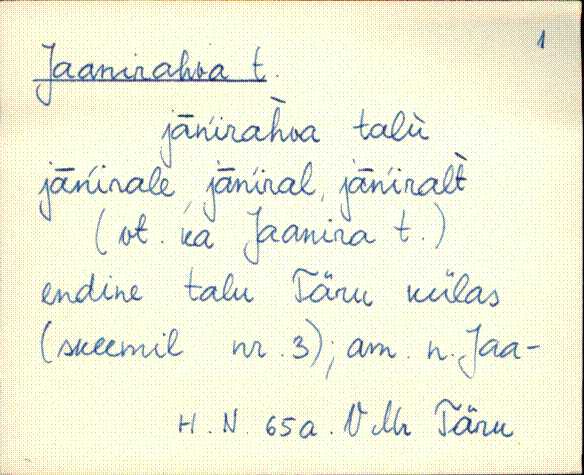 1
Jaanirahva t.
jāńirah̀va talù
jāńirale, jāńiral, jāńiralt̀
(vt. ka Jaanira t.)
endine talu Täru külas
(skeemil nr. 3); am. n. Jaa-
H. N. 65a. VMr Täru